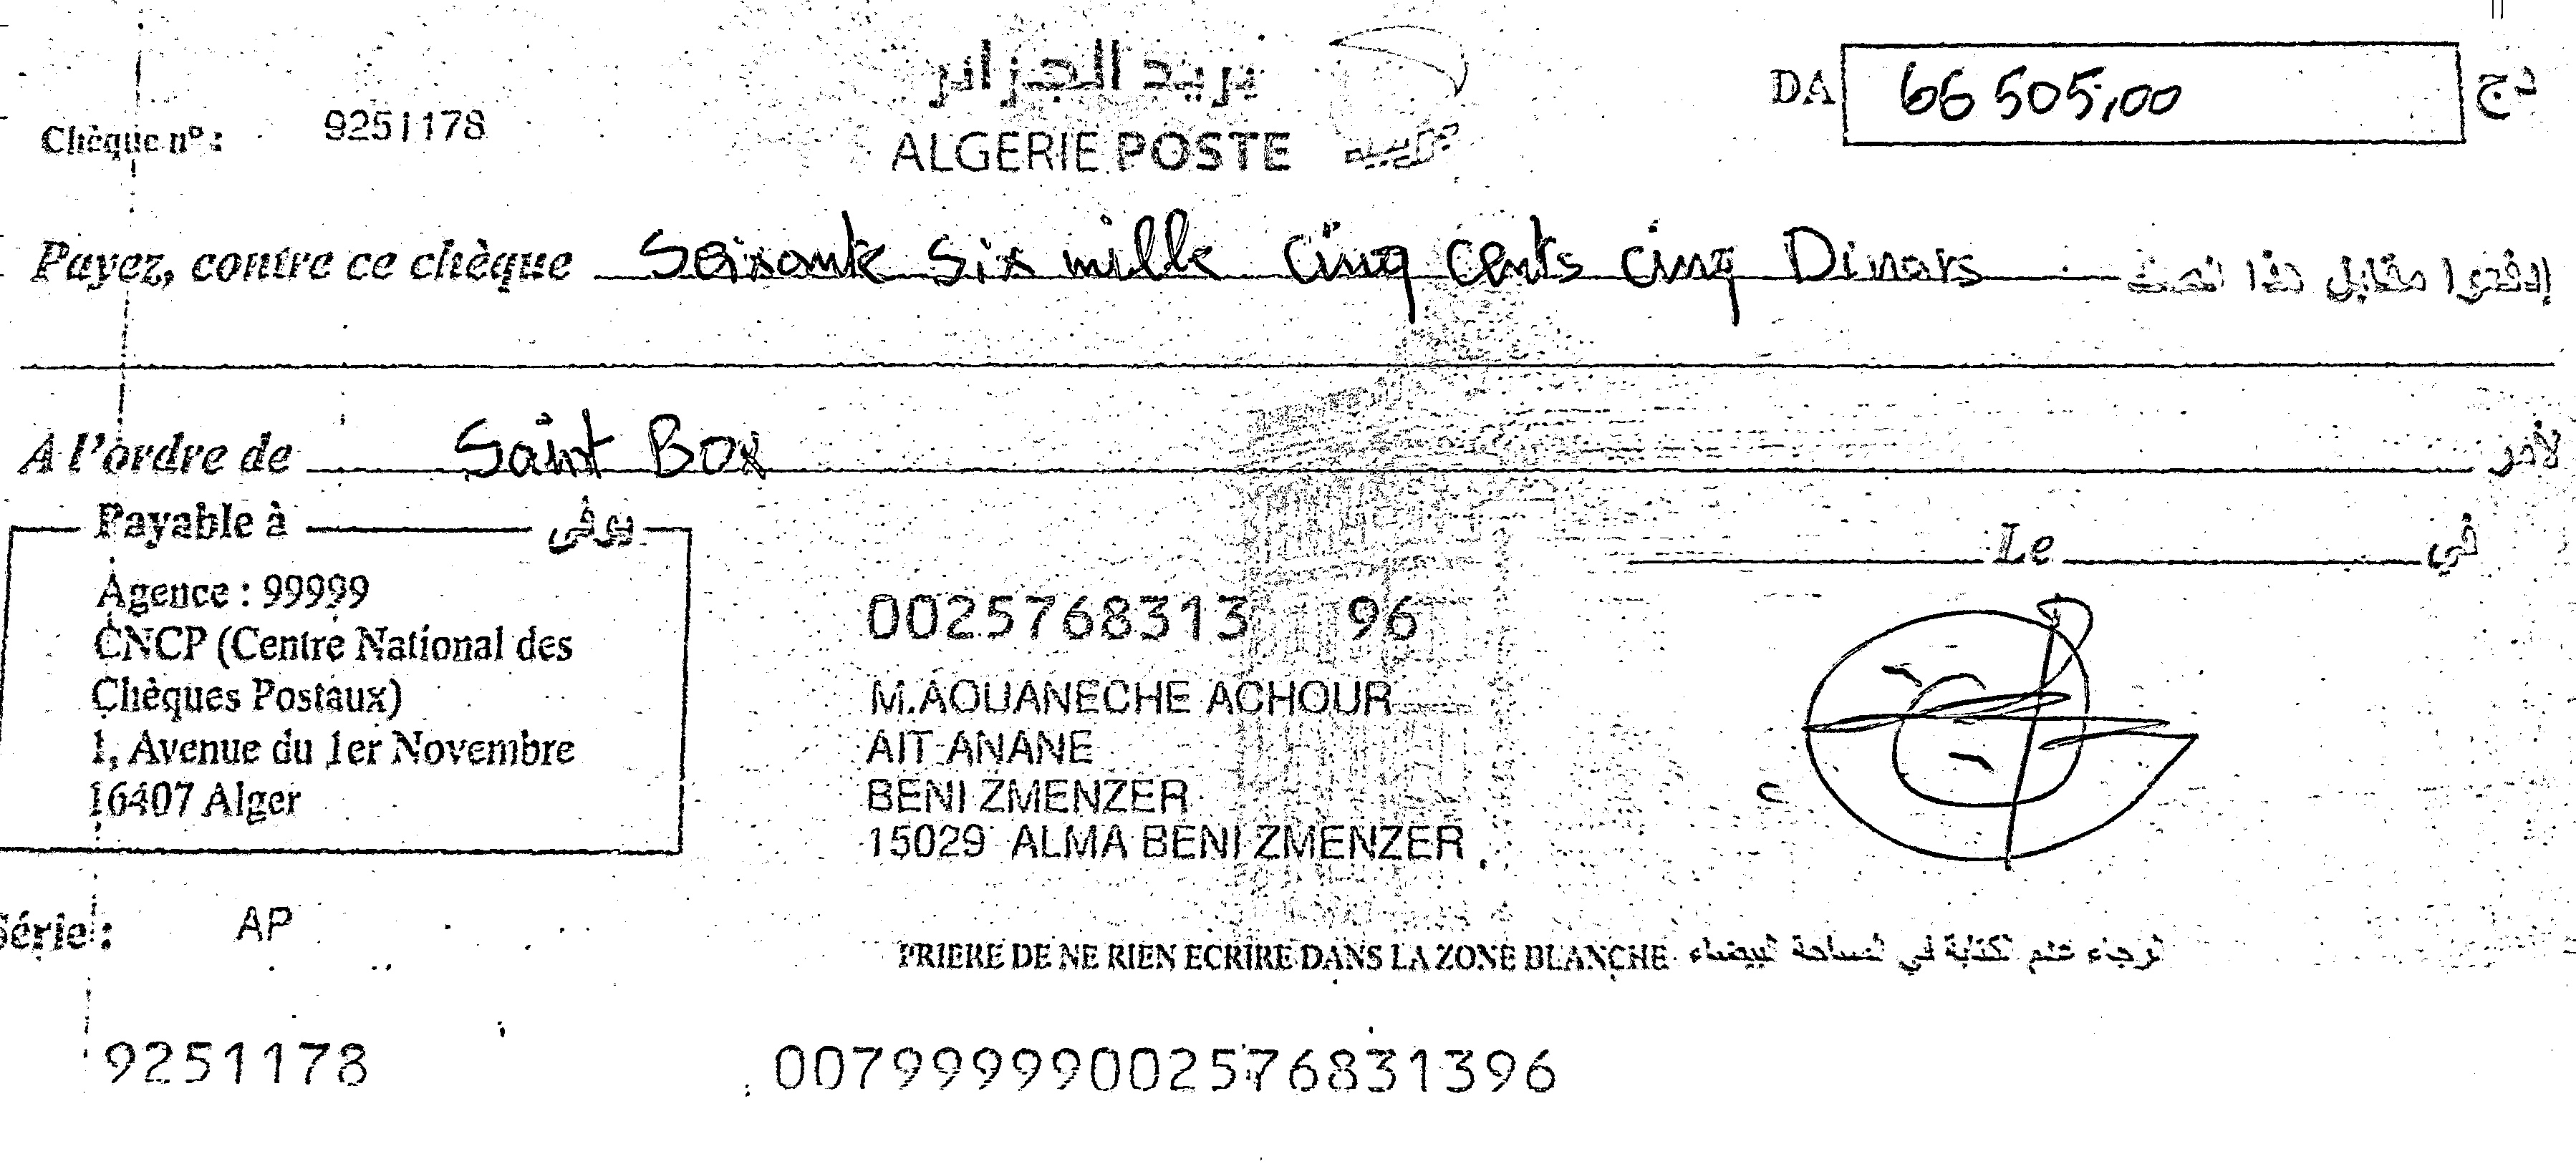 Chèque n° : 9251178
بريد الجزائر
ALGERIE POSTE
DA 66 505,00 دج
Payez, contre ce chèque Soixante Six mille cinq cents cinq Dinars إدفعوا مقابل هذا الصك
A l'ordre de Saint Box لأمر
Payable à يوفى
Agence : 99999
CNCP (Centre National des
Chèques Postaux)
1, Avenue du 1er Novembre
16407 Alger
Le في
0025768313 96
M.AOUANECHE ACHOUR
AIT ANANE
BENI ZMENZER
15029 ALMA BENI ZMENZER
Série : AP
PRIERE DE NE RIEN ECRIRE DANS LA ZONE BLANCHE الرجاء عدم الكتابة في المساحة البيضاء
9251178 00799999002576831396